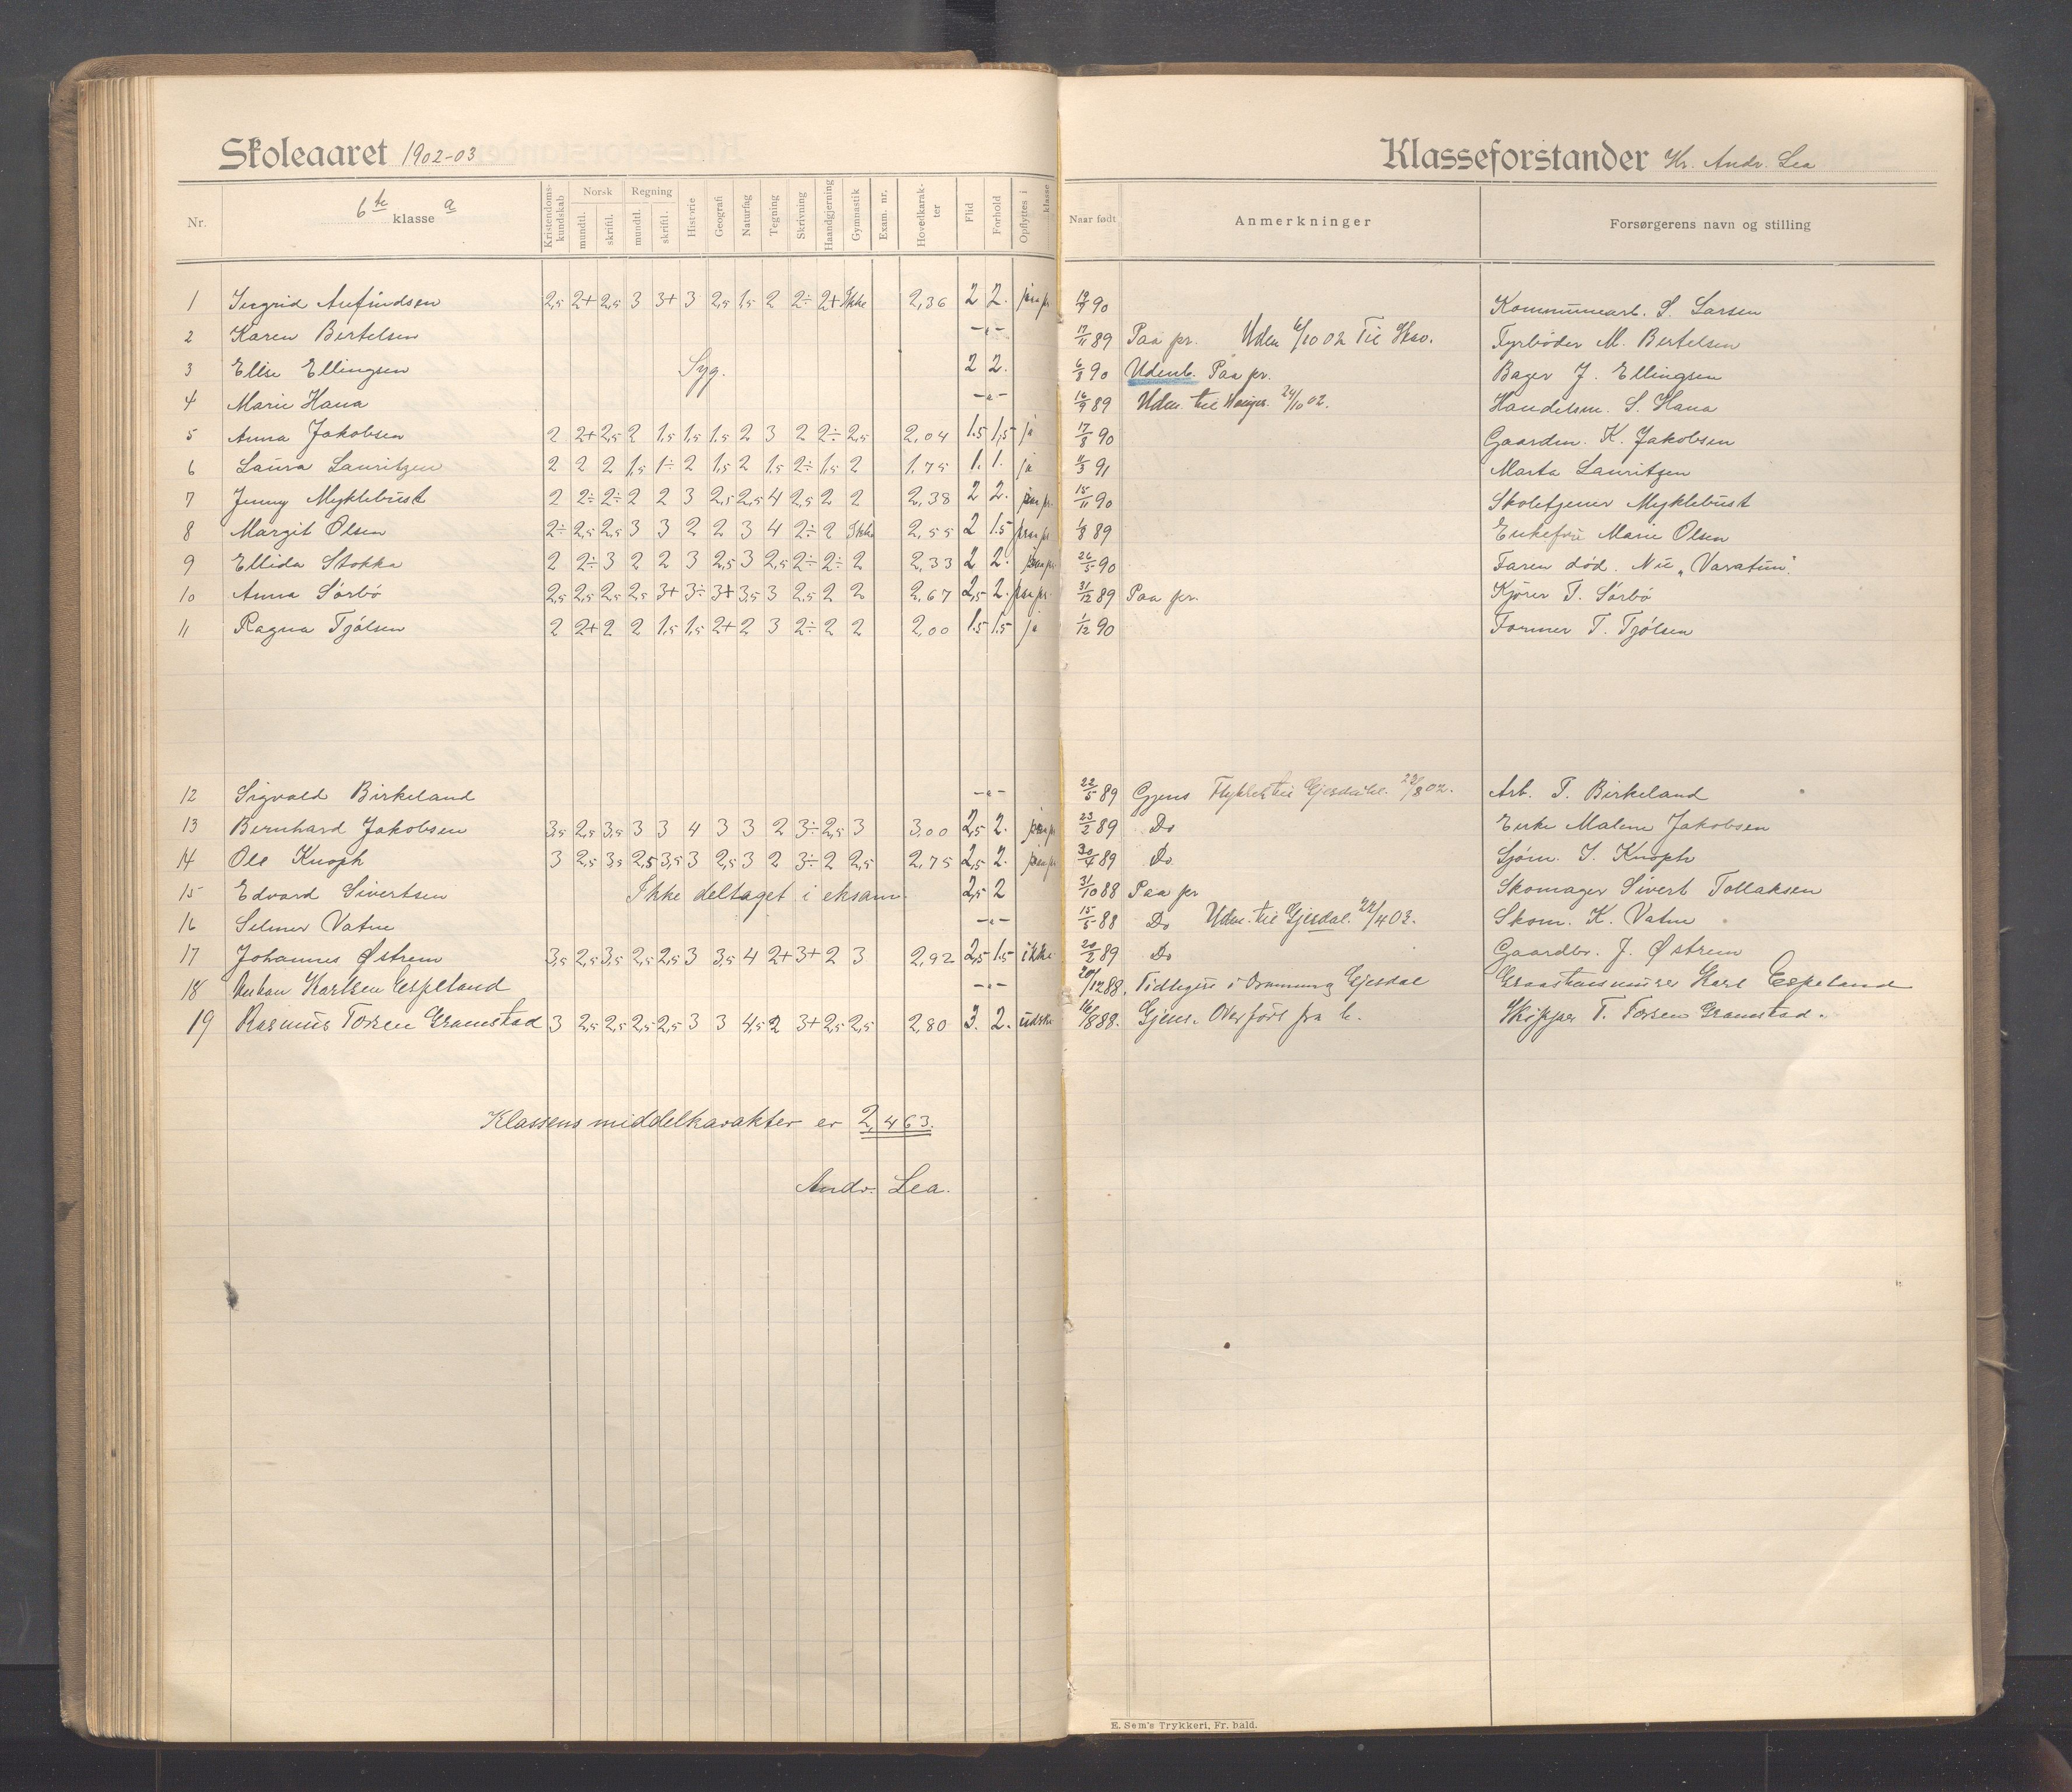 Skoleaaret 1902-03
Klasseforstander Kr. Andr. Lea
Nr. 6te klasse a Kristendomskundskab Norsk mundtl. skriftl. Regning mundtl. skriftl. Historie Geografi Naturfag Tegning Skrivning Haandgjerning Gymnastik Exam. nr. Hovedkarakter Flid Forhold Opflyttes i klasse Naar født Anmerkninger Forsørgerens navn og stilling
1 Ingrid Anfindsen 2,5 2+ 2,5 3 3+ 3 2,5 1,5 2 2÷ 2+ Ikke 2,36 2 2. paa pr. 90 Kommunearb. S. Larsen
2 Karen Bertelsen -"- 17/11 89 Paa pr. Udm 6/10 02 Til Fyrbøder M. Bertelsen
3 Elise Ellingsen Syg. 2 2. 6/8 90 Udenb. Paa pr. Bager J. Ellingsen
4 Marie Hana -"- 16/9 89 Udm. til 24/10 02. Handelsm. S. Hana
5 Anna Jakobsen 2 2+ 2,5 2 1,5 1,5 1,5 2 3 2 2÷ 2,5 2,04 1.5 1,5 ja 17/8 90 Gaardm. K. Jakobsen
6 Laura Lauritzen 2 2 2 1,5 1÷ 2 1,5 2 1,5 2÷ 1,5 2 1,75 1. 1. ja 11/3 91 Marta Lauritzen
7 Jenny Myklebust 2 2÷ 2÷ 2 2 3 2,5 2,5 4 2,5 2 2 2,38 2 2. paa pr. 15/11 90 Skoletjener Myklebust
8 Margit Olsen 2÷ 2,5 2,5 3 3 2 2 3 4 2÷ 2 Ikke 2,55 2 1.5 paa pr. 1/8 89 Enkefru Marie Olsen
9 Ellida Stokka 2 2÷ 3 2 2 3 2,5 3 2,5 2÷ 2÷ 2 2,33 2 2. paa pr. 26/5 90 Faren død. Nu "Varatun".
10 Anna Sørbø 2,5 2,5 2,5 2,5 3+ 3÷ 3+ 3,5 3 2,5 2 2 2,67 2,5 2. paa pr. 31/12 89 Paa pr. Kjører T. Sørbø
11 Ragna Tjølsen 2 2+ 2 2 1,5 1,5 2+ 2 3 2÷ 2 2 2,00 1.5 1.5 ja 1/12 90 Former T. Tjølsen
12 Sigvald Birkeland -"- 22/5 89 Gjens Flyttet til Gjesdahl. 22/8 02. Arb. T. Birkeland
13 Bernhard Jakobsen 3,5 2,5 3,5 3 3 4 3 3 2 3÷ 2,5 3 3,00 2,5 2. paa pr 23/2 89 Do Enke Malene Jakobsen
14 Ole Knoph 3 2,5 3,5 2,5 3,5 3 2,5 3 2 3÷ 2 2,5 2,75 2,5 2. paa pr 30/4 89 Do. Sjøm. I. Knoph
15 Edvard Sivertsen Ikke deltaget i eksam. 2,5 2 31/10 88 Paa pr Skomager Sivert Tollaksen
16 Selmer Vatne -"- 15/5 88 Do Udm. til Gjesdal. 22/4 03. Skom. K. Vatne
17 Johannes Østrem 3,5 2,5 3,5 2,5 2,5 3 3,5 4 2+ 3+ 2 3 2,92 2,5 1.5 ikke 20/2 89 Do Gaardbr. J. Østrem
18 Karlsen Espeland -"- 20/12 88. Tidligere i Gjesdal Karl Espeland
19 Rasmus Torsen Gramstad 3 2,5 2,5 2,5 2,5 3 3 4,5 2 3+ 2,5 2,5 2,80 3. 2. udskr 16/8 88. Gjens. Overført fra b. Skipper T. Torsen Gramstad.
Klassens middelkarakter er 2,463.
Andr. Lea.
E. Sem's Trykkeri, Fr. hald.